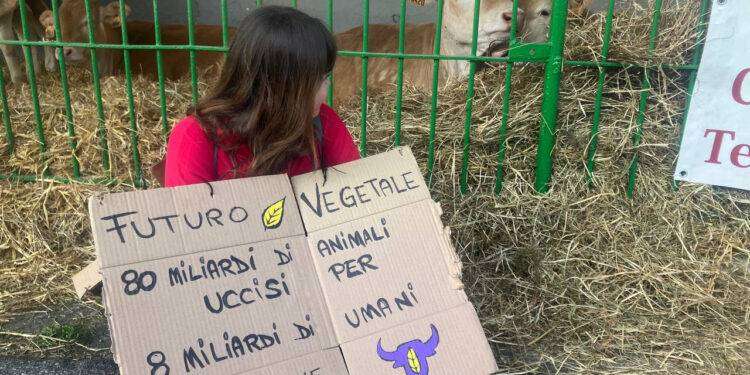 FUTURO
80 MILIARDI DI
UCCISI
8 MILIARDI DI
VEGETALE
ANIMALI
PER
UMANI
Te